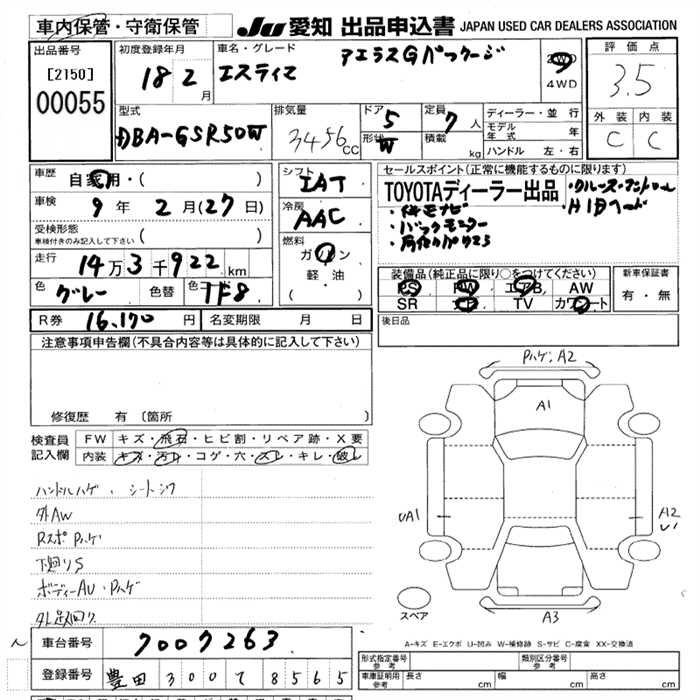 車内保管・守衛保管
JU 愛知 出品申込書 JAPAN USED CAR DEALERS ASSOCIATION
出品番号
[2150]
00055
初度登録年月
18 2 月
車名・グレード
エスティマ アエラスGパッケージ
2WD
4WD
評価点
3.5
外装 内装
C C
型式
DBA-GSR50W
排気量
3456 cc
ドア 5
形状 W
定員 7 人
積載 kg
ディーラー・並行
モデル年式 年
ハンドル 左・右
車歴 自家用・( )
車検 9年 2月(27日)
受検形態
車検付きのみ記入して下さい ( )
走行 14万3千922 km
色 グレー 色替 色コード 1F8
シフト
IAT
冷房
AAC
燃料
ガソリン
軽・油
( )
セールスポイント(正常に機能するものに限ります)
TOYOTAディーラー出品
・クルーズ・コントロール
・HIDヘッド
・バックモニター
装備品(純正品に限り○をつけてください)
PS PW エアB AW
SR TV カワシート
新車保証書
有・無
R券 16,170 円 名変期限 月 日
後日品
注意事項申告欄(不具合内容等は具体的に記入して下さい)
修復歴 有〔箇所
検査員記入欄
FW キズ・飛石・ヒビ割・リペア跡・X要
内装 キズ・汚れ・コゲ・穴・スレ・キレ・破レ
ハンドルハゲ、シートシワ
外AW
RスポPハゲ
下廻りS
ボディーAU・Pハゲ
Pハゲ, A2
A1
UA1
A12
U1
A3
スペア
A-キズ E-エクボ U-凹み W-補修跡 S-サビ C-腐食 XX-交換済
車台番号 7007263
登録番号 豊田300 8565
形式指定番号 参考
類別区分番号 参考
車庫証明用 参考 長さ cm 幅 cm 高さ cm